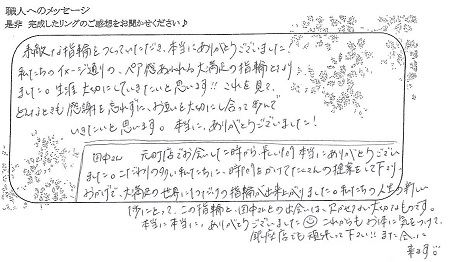 職人へのメッセージ
是非 完成したリングのご感想をお聞かせください♪
素敵な指輪をつくっていただき、本当にありがとうございました!
私たちのイメージ通りの、ペア感あふれる大満足の指輪となり
ました。生涯大切にしていきたいと思います!! これを見て、
どんなときも感謝を忘れずに、お互いを大切にし合って歩んで
いきたいと思います。本当に、ありがとうございました!
田中さん 元町店でお会いした時から、長い間本当にありがとうござい
ました。こだわりの多い私たちに、時間をかけてたくさんの提案をして下さり
おかげで、大満足の世界に1つだけの指輪が出来上がりました。私たちの人生の新しい
歩にとって、この指輪と、田中さんとの出会いは、欠かせない大切なものです。
本当に本当に、ありがとうございました☺ これからもお体に気をつけて、
銀座店でも頑張って下さい!! また会いに
来ます